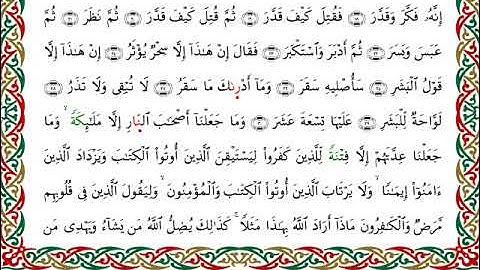 إِنَّهُۥ فَكَّرَ وَقَدَّرَ ۝١٨ فَقُتِلَ كَيْفَ قَدَّرَ ۝١٩ ثُمَّ قُتِلَ كَيْفَ قَدَّرَ ۝٢٠ ثُمَّ نَظَرَ ۝٢١ ثُمَّ
عَبَسَ وَبَسَرَ ۝٢٢ ثُمَّ أَدْبَرَ وَٱسْتَكْبَرَ ۝٢٣ فَقَالَ إِنْ هَٰذَآ إِلَّا سِحْرٌ يُؤْثَرُ ۝٢٤ إِنْ هَٰذَآ إِلَّا
قَوْلُ ٱلْبَشَرِ ۝٢٥ سَأُصْلِيهِ سَقَرَ ۝٢٦ وَمَآ أَدْرَىٰكَ مَا سَقَرُ ۝٢٧ لَا تُبْقِى وَلَا تَذَرُ ۝٢٨
لَوَّاحَةٌ لِّلْبَشَرِ ۝٢٩ عَلَيْهَا تِسْعَةَ عَشَرَ ۝٣٠ وَمَا جَعَلْنَآ أَصْحَٰبَ ٱلنَّارِ إِلَّا مَلَٰٓئِكَةً ۙ وَمَا
جَعَلْنَا عِدَّتَهُمْ إِلَّا فِتْنَةً لِّلَّذِينَ كَفَرُوا۟ لِيَسْتَيْقِنَ ٱلَّذِينَ أُوتُوا۟ ٱلْكِتَٰبَ وَيَزْدَادَ ٱلَّذِينَ
ءَامَنُوٓا۟ إِيمَٰنًا ۙ وَلَا يَرْتَابَ ٱلَّذِينَ أُوتُوا۟ ٱلْكِتَٰبَ وَٱلْمُؤْمِنُونَ ۙ وَلِيَقُولَ ٱلَّذِينَ فِى قُلُوبِهِم
مَّرَضٌ وَٱلْكَٰفِرُونَ مَاذَآ أَرَادَ ٱللَّهُ بِهَٰذَا مَثَلًا ۚ كَذَٰلِكَ يُضِلُّ ٱللَّهُ مَن يَشَآءُ وَيَهْدِى مَن